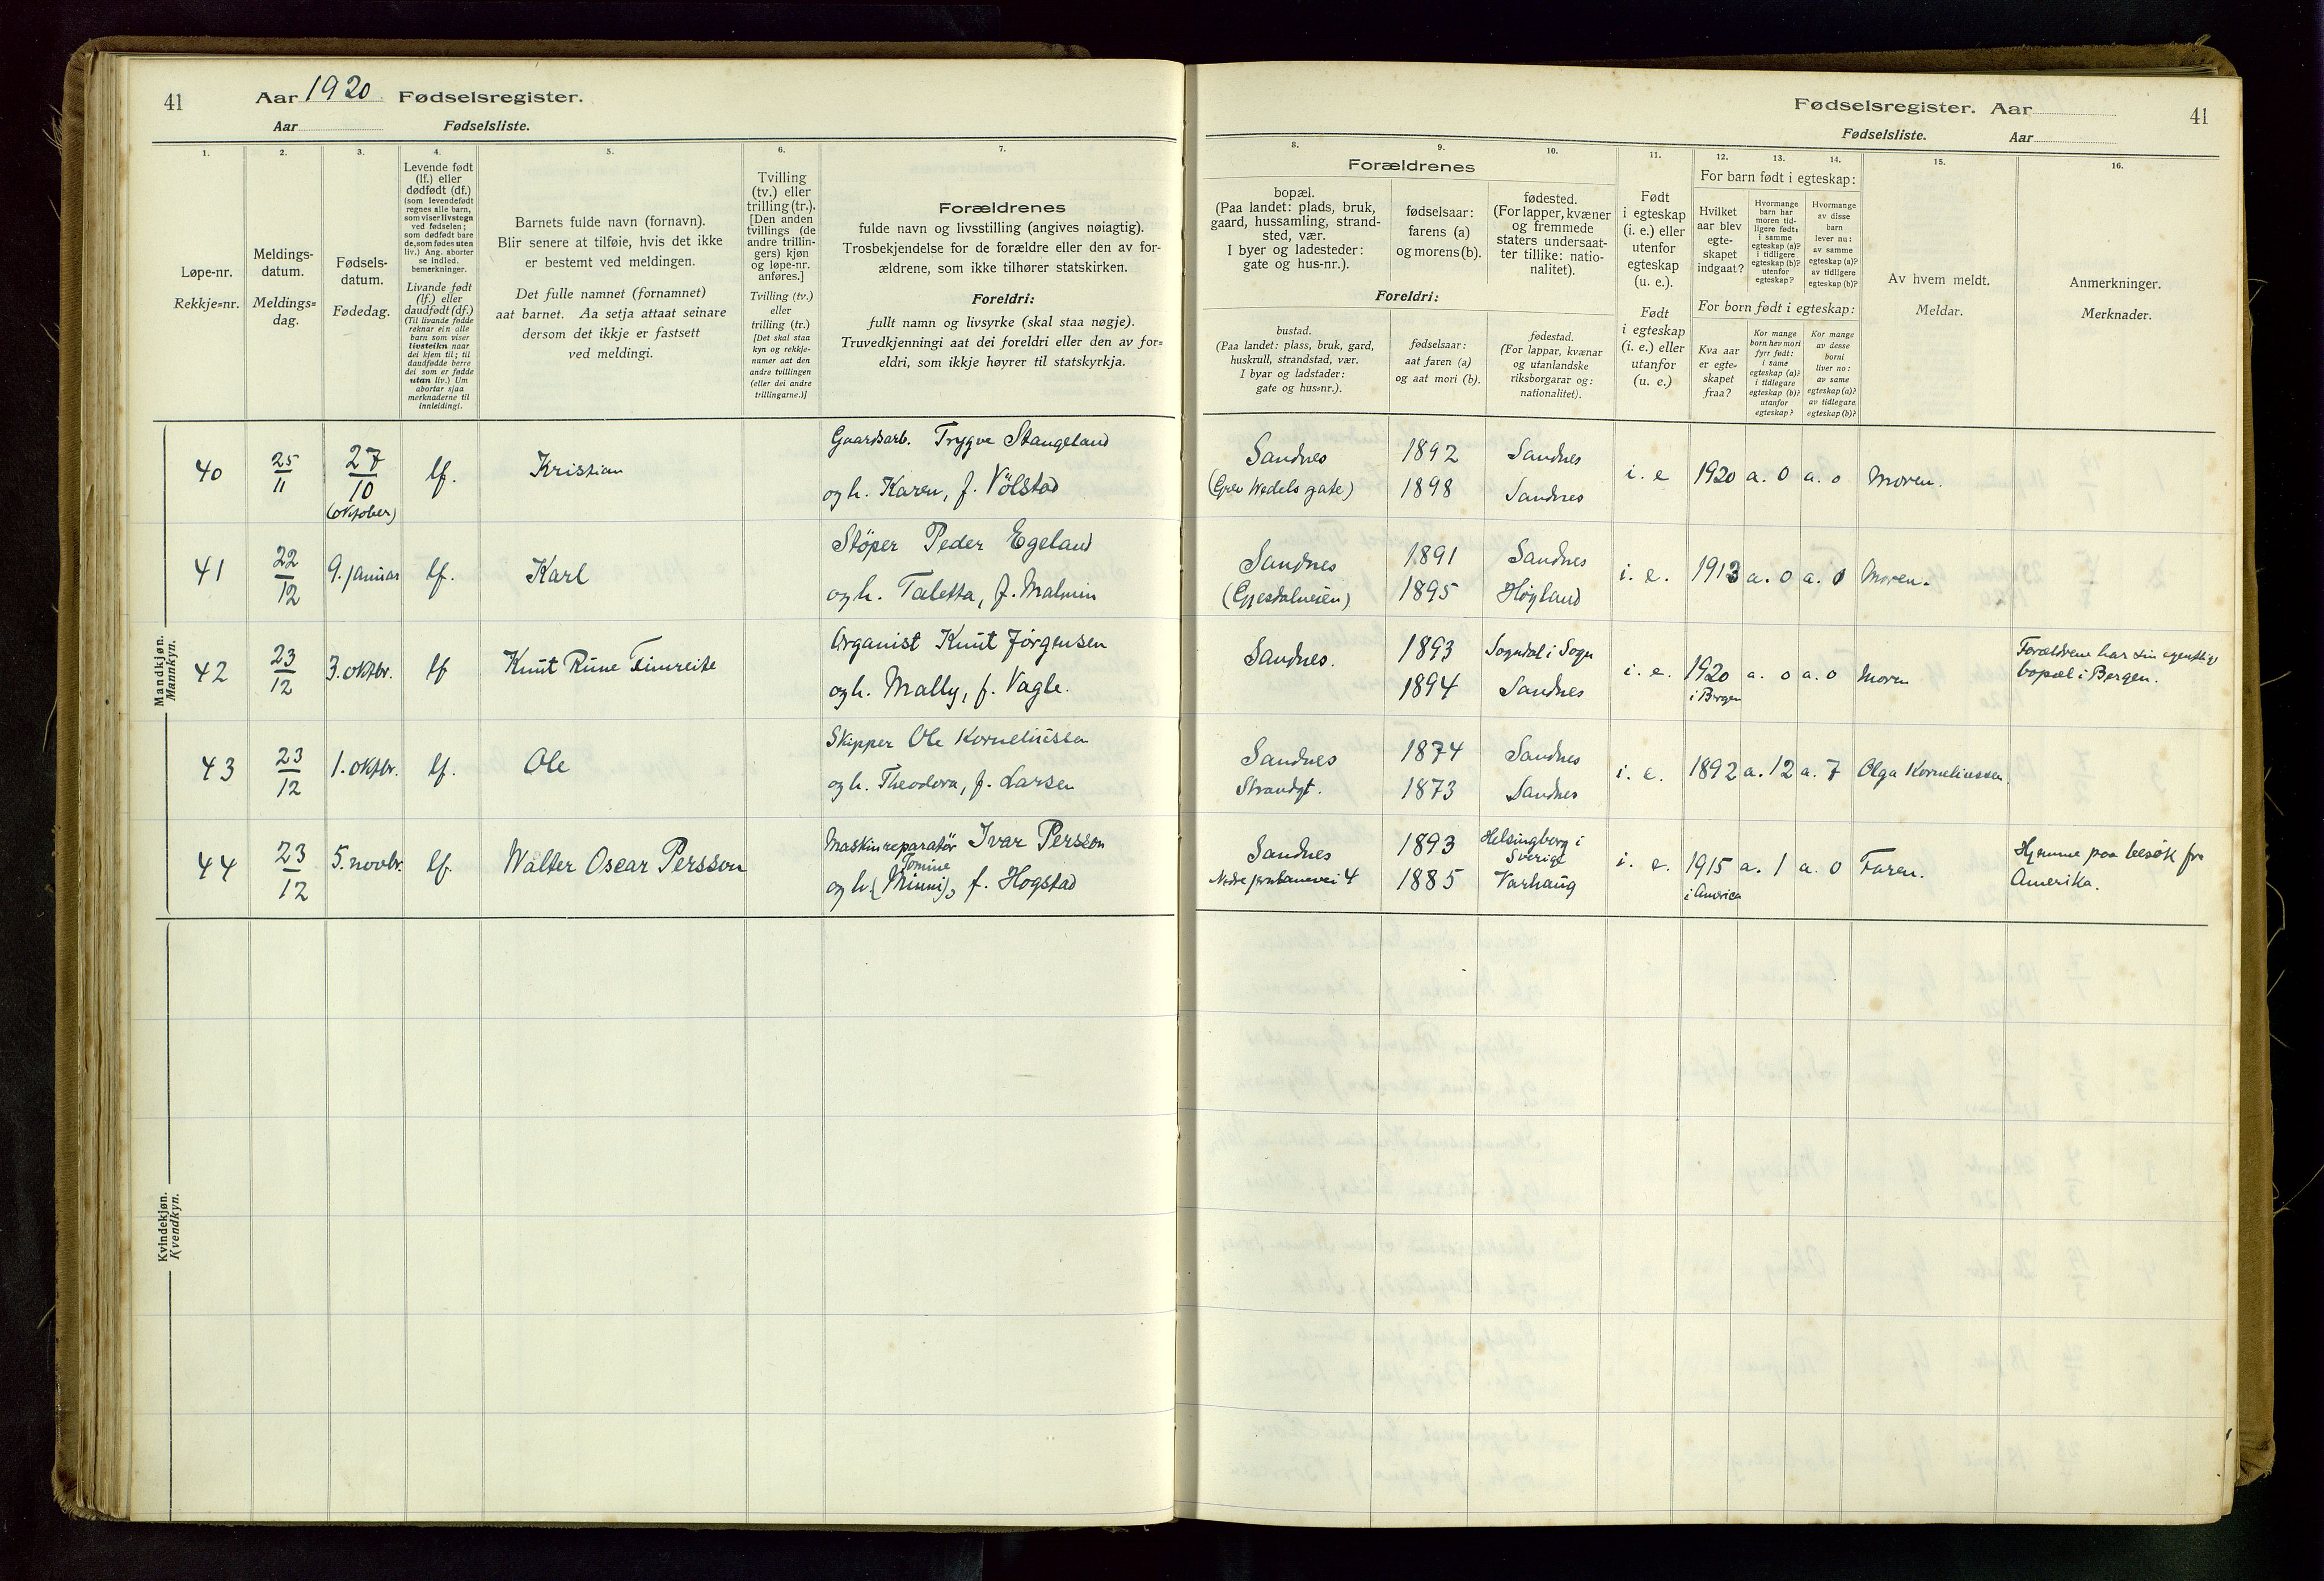 41 Aar 1920 Fødselsregister.
Aar Fødselsliste.
Fødselsregister. Aar 41
Fødselsliste. Aar
1.
Løpe-nr.
Rekkje=nr.
2.
Meldings-
datum.
Meldings=
dag.
3.
Fødsels-
datum.
Fødedag.
4.
Levende født
(lf.) eller
dødfødt (df.)
(som levendefødt
regnes alle barn,
som viser livstegn
ved fødselen;
som dødfødt bare
de, som fødes uten
liv.) Ang. aborter
se indled.
bemerkninger.
Livande født
(lf.) eller
daudfødt (df.)
(Til livande fødde
reknar ein alle
barn som viser
livsteikn naar
dei kjem til; til
daudfødde berre
dei som er fødde
utan liv.) Um
abortar sjaa
merknaderne til
innleidingi.
5.
Barnets fulde navn (fornavn).
Blir senere at tilføie, hvis det ikke
er bestemt ved meldingen.
Det fulle namnet (fornamnet)
aat barnet. Aa setja attaat seinare
dersom det ikkje er fastsett
ved meldingi.
6.
Tvilling
(tv.) eller
trilling (tr.).
[Den anden
tvillings (de
andre trillin-
gers) kjøn
og løpe-nr.
anføres.]
Tvilling (tv.)
eller
trilling (tr.)
[Det skal staa
kyn og rekkje-
numer aat den
andre tvillingen
(eller dei andre
trillingarne.)]
7.
Forældrenes
fulde navn og livsstilling (angives nøiagtig).
Trosbekjendelse for de forældre eller den av for-
ældrene, som ikke tilhører statskirken.
Foreldri:
fullt namn og livsyrke (skal staa nøgje).
Truvedkjenningi aat dei foreldri eller den av for=
eldri, som ikkje høyrer til statskyrkja.
Forældrenes
8.
bopæl.
(Paa landet: plads, bruk,
gaard, hussamling, strand-
sted, vær.
I byer og ladesteder:
gate og hus-nr.).
9.
fødselsaar:
farens (a)
og morens (b).
10.
fødested.
(For lapper, kvæner
og fremmede
staters undersaat-
ter tillike: natio-
nalitet).
Foreldri:
bustad.
(Paa landet: plass, bruk, gard,
huskrull, strandstad, vær.
I byar og ladstader:
gate og hus=nr.).
fødselsaar:
aat faren (a)
og aat mori (b).
fødestad.
(For lappar, kvænar
og utanlandske
riksborgarar og:
nationalitet).
11.
Født
i egteskap
(i. e.) eller
utenfor
egteskap
(u. e.).
Født
i egteskap
(i. e.) eller
utanfor
(u. e.)
12. 13. 14.
For barn født i egteskap:
Hvilket
aar blev
egte-
skapet
indgaat?
Hvormange
barn har
moren tid-
ligere født:
i samme
egteskap (a)?
i tidligere
egteskap (b)?
utenfor
egteskap?
Hvormange
av disse
barn
lever nu:
av samme
egteskap (a)?
av tidligere
egteskap (b)?
For born født i egteskap:
Kva aar
er egte=
skapet
fraa?
Kor mange
born hev mori
fyrr født:
i same
egteskap (a)?
i tidlegare
egteskap (b)?
utanfor
egteskap?
Kor mange
av desse
borni
liver no:
av same
egteskap (a)?
av tidlegare
egteskap (b)?
15.
Av hvem meldt.
Meldar.
16.
Anmerkninger.
Merknader.
Mandkjøn.
Mannkyn.
40 25/11 27/10 (oktober) lf. Kristian
Gaardsarb. Trygve Stangeland
og h. Karen, f. Völstad
Sandnes 1892 Sandnes
(Grev Wedels gate) 1898 Sandnes
i. e 1920 a. 0 a. 0 Moren.
41 22/12 9. januar lf. Karl
Støper Peder Egeland
og h. Taletta, f. Malmin
Sandnes 1891 Sandnes
(Gjesdalveien) 1895 Høyland
i. e. 1913 a. 0 a. 0 Moren.
42 23/12 3. oktbr. lf Knut Rune Fimreite
Organist Knut Jörgensen
og h. Mally, f. Vagle.
Sandnes. 1893 Sogndal i Sogn
1894 Sandnes
i. e. 1920 i Bergen a. 0 a. 0 Moren
Forældrene har sin egentlige
bopæl i Bergen.
43 23/12 1. oktbr. lf. Ole
Skipper Ole Korneliussen
og h. Theodora, f. Larsen
Sandnes 1874 Sandnes
Strandgt. 1873 Sandnes
i. e. 1892 a. 12 a. 7 Olga Korneliussen.
44 23/12 5. novbr. lf. Walter Oscar Persson
Maskinreparatör Ivar Persson
Tomine
og h. (Minni), f. Hogstad
Sandnes 1893 Helsingborg i Sverige
Nedre jernbanevei 4 1885 Varhaug
i. e. 1915 i America a. 1 a. 0 Faren.
Hjemme paa besök fr
Amerika.
Kvindekjøn.
Kvendkyn.